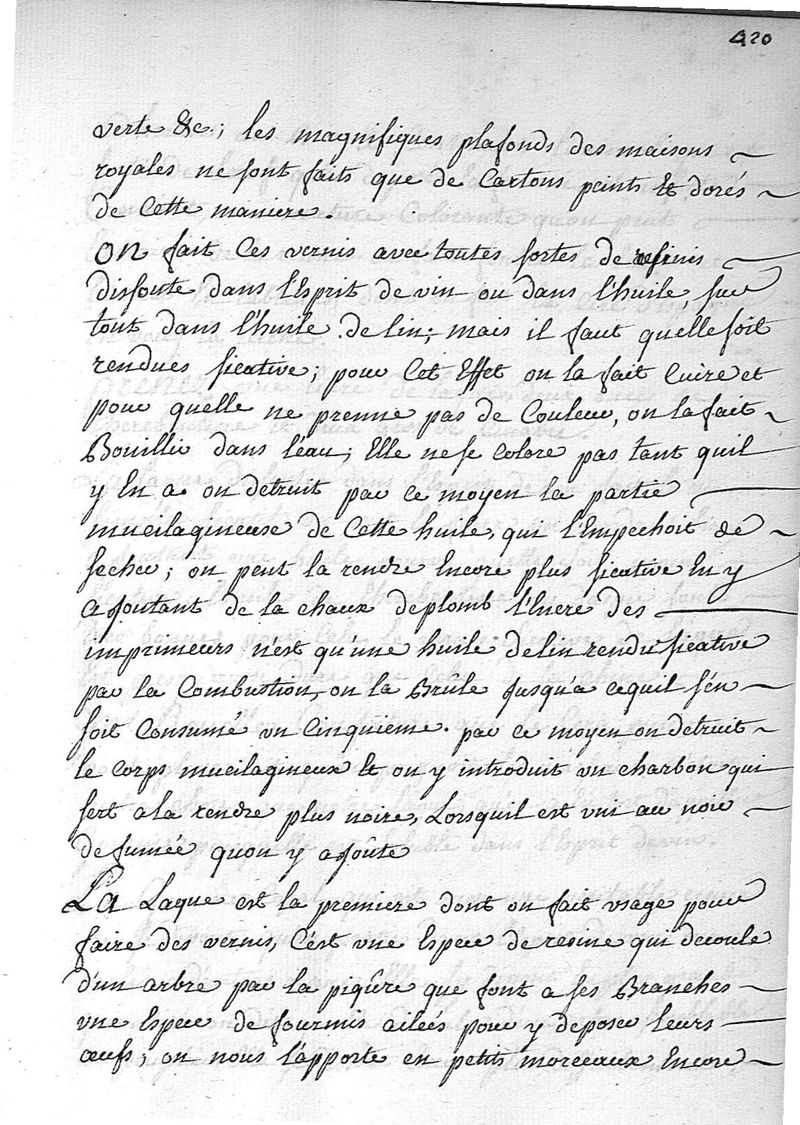 420
verte &c.; les magnifiques plafonds des maisons
royales ne sont faits que de Cartons peints & dorés
de Cette maniere.
On fait Ces vernis avec toutes sortes de resinis
dissoute dans l'Esprit de vin ou dans l'huile, sur
tout dans l'huile de lin; mais il faut quelle soit
rendues sicative; pour Cet Effet on la fait Cuire et
pour quelle ne prenne pas de Couleur, on la fait
Bouillir dans l'eau; Elle ne se Colore pas tant quil
y En a on detruit par ce moyen la partie
mucilagineuse de Cette huile, qui l'Empechoit de
secher; on peut la rendre Encore plus sicative En y
ajoutant de la chaux de plomb l'Encre des
imprimeurs n'est qu'une huile de lin rendu sicative
par la Combustion, on la Brûle jusqu'a cequil s'en
soit Consumé un Cinquieme. par ce moyen on detruit
le corps mucilagineux & on y introduit un charbon qui
sert a la rendre plus noire, Lorsquil est uni au noir
de fumée quon y ajoûte
La Laque est la premiere dont on fait usage pour
faire des vernis, C'est une Espece de resine qui decoule
d'un arbre par la piqûre que font a ses Branches
une Espece de fourmis ailées pour y deposer leurs
œufs; on nous l'apporte en petits morceaux Encore